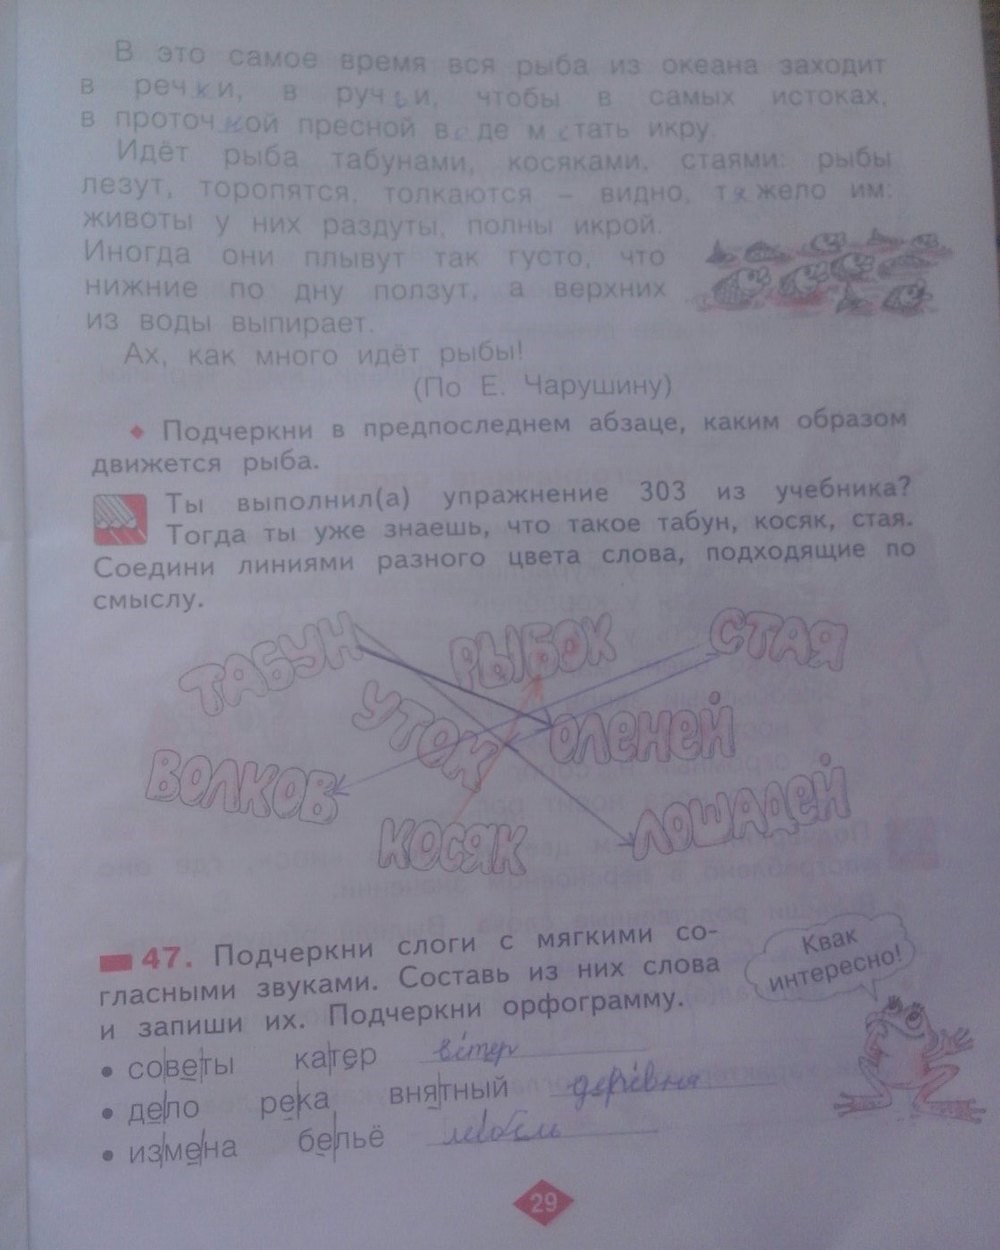 В это самое время вся рыба из океана заходит
в речки, в ручьи, чтобы в самых истоках,
в проточной пресной воде метать икру.
Идёт рыба табунами, косяками, стаями: рыбы
лезут, торопятся, толкаются – видно, тяжело им:
животы у них раздуты, полны икрой.
Иногда они плывут так густо, что
нижние по дну ползут, а верхних
из воды выпирает.
Ах, как много идёт рыбы!
(По Е. Чарушину)
• Подчеркни в предпоследнем абзаце, каким образом
движется рыба.
Ты выполнил(а) упражнение 303 из учебника?
Тогда ты уже знаешь, что такое табун, косяк, стая.
Соедини линиями разного цвета слова, подходящие по
смыслу.
ТАБУН РЫБОК СТАЯ
УТОК ОЛЕНЕЙ
ВОЛКОВ ЛОШАДЕЙ
КОСЯК
47. Подчеркни слоги с мягкими со-
гласными звуками. Составь из них слова
и запиши их. Подчеркни орфограмму.
Квак
интересно!
• советы катер ветер
• дело река внятный деревня
• измена бельё
29